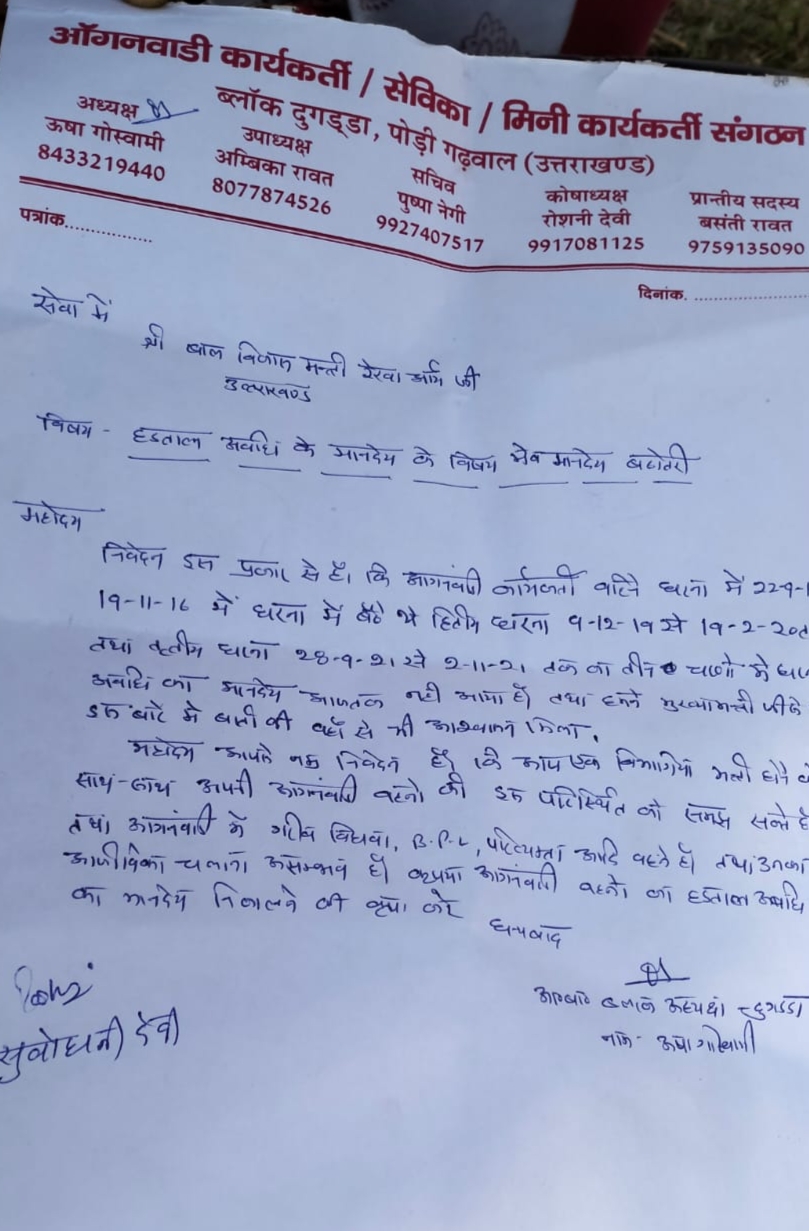 ऑगनवाडी कार्यकर्ती / सेविका / मिनी कार्यकर्ती संगठन
ब्लॉक दुगड्डा, पोड़ी गढ़वाल (उत्तराखण्ड)
अध्यक्ष
ऊषा गोस्वामी
8433219440
उपाध्यक्ष
अम्बिका रावत
8077874526
सचिव
पुष्पा नेगी
9927407517
कोषाध्यक्ष
रोशनी देवी
9917081125
प्रान्तीय सदस्य
बसंती रावत
9759135090
पत्रांक................
दिनांक. ......................
सेवा में
श्री बाल विकास मन्त्री रेखा आर्य जी
उत्तराखण्ड
विषय - हडताल अवधि के मानदेय के विषय मानदेय बढोतरी
महोदय
निवेदन इस प्रकार से है। कि आगनवाडी कार्यकर्ती धरना में 22-9-1
19-11-16 में धरना में बैठे थे द्वितीय धरना 9-12-19 से 19-2-20
तथा तृतीय धरना 28-9-21 से 2-11-21 तक का तीन चरणो में
अवधि का मानदेय आजतक नही आया है। तथा हमने मुख्यमन्त्री जी
इस बारे में बाती की वहाँ से भी आश्वासन मिला,
महोदय आपसे नम्र निवेदन है। कि आप एक विभागिय मन्त्री होने के
साथ-साथ अपनी आगनंवाडी बहनो की इस परिस्थित को समझ सकते है
तथा आगनंवाडी में गरीब विधवा, B.P.L, परित्यक्ता आदि बहने है। तथा उनका
आजीविका चलाना असम्भव है। कृपया आगनंवाडी बहनो का हडताल अवधि
का मानदेय निकालने की कृपा करे
धन्यवाद
ब्लाक अध्यक्षा दुगड्डा
नाम - ऊषा गोस्वामी
सुबोधनी देवी